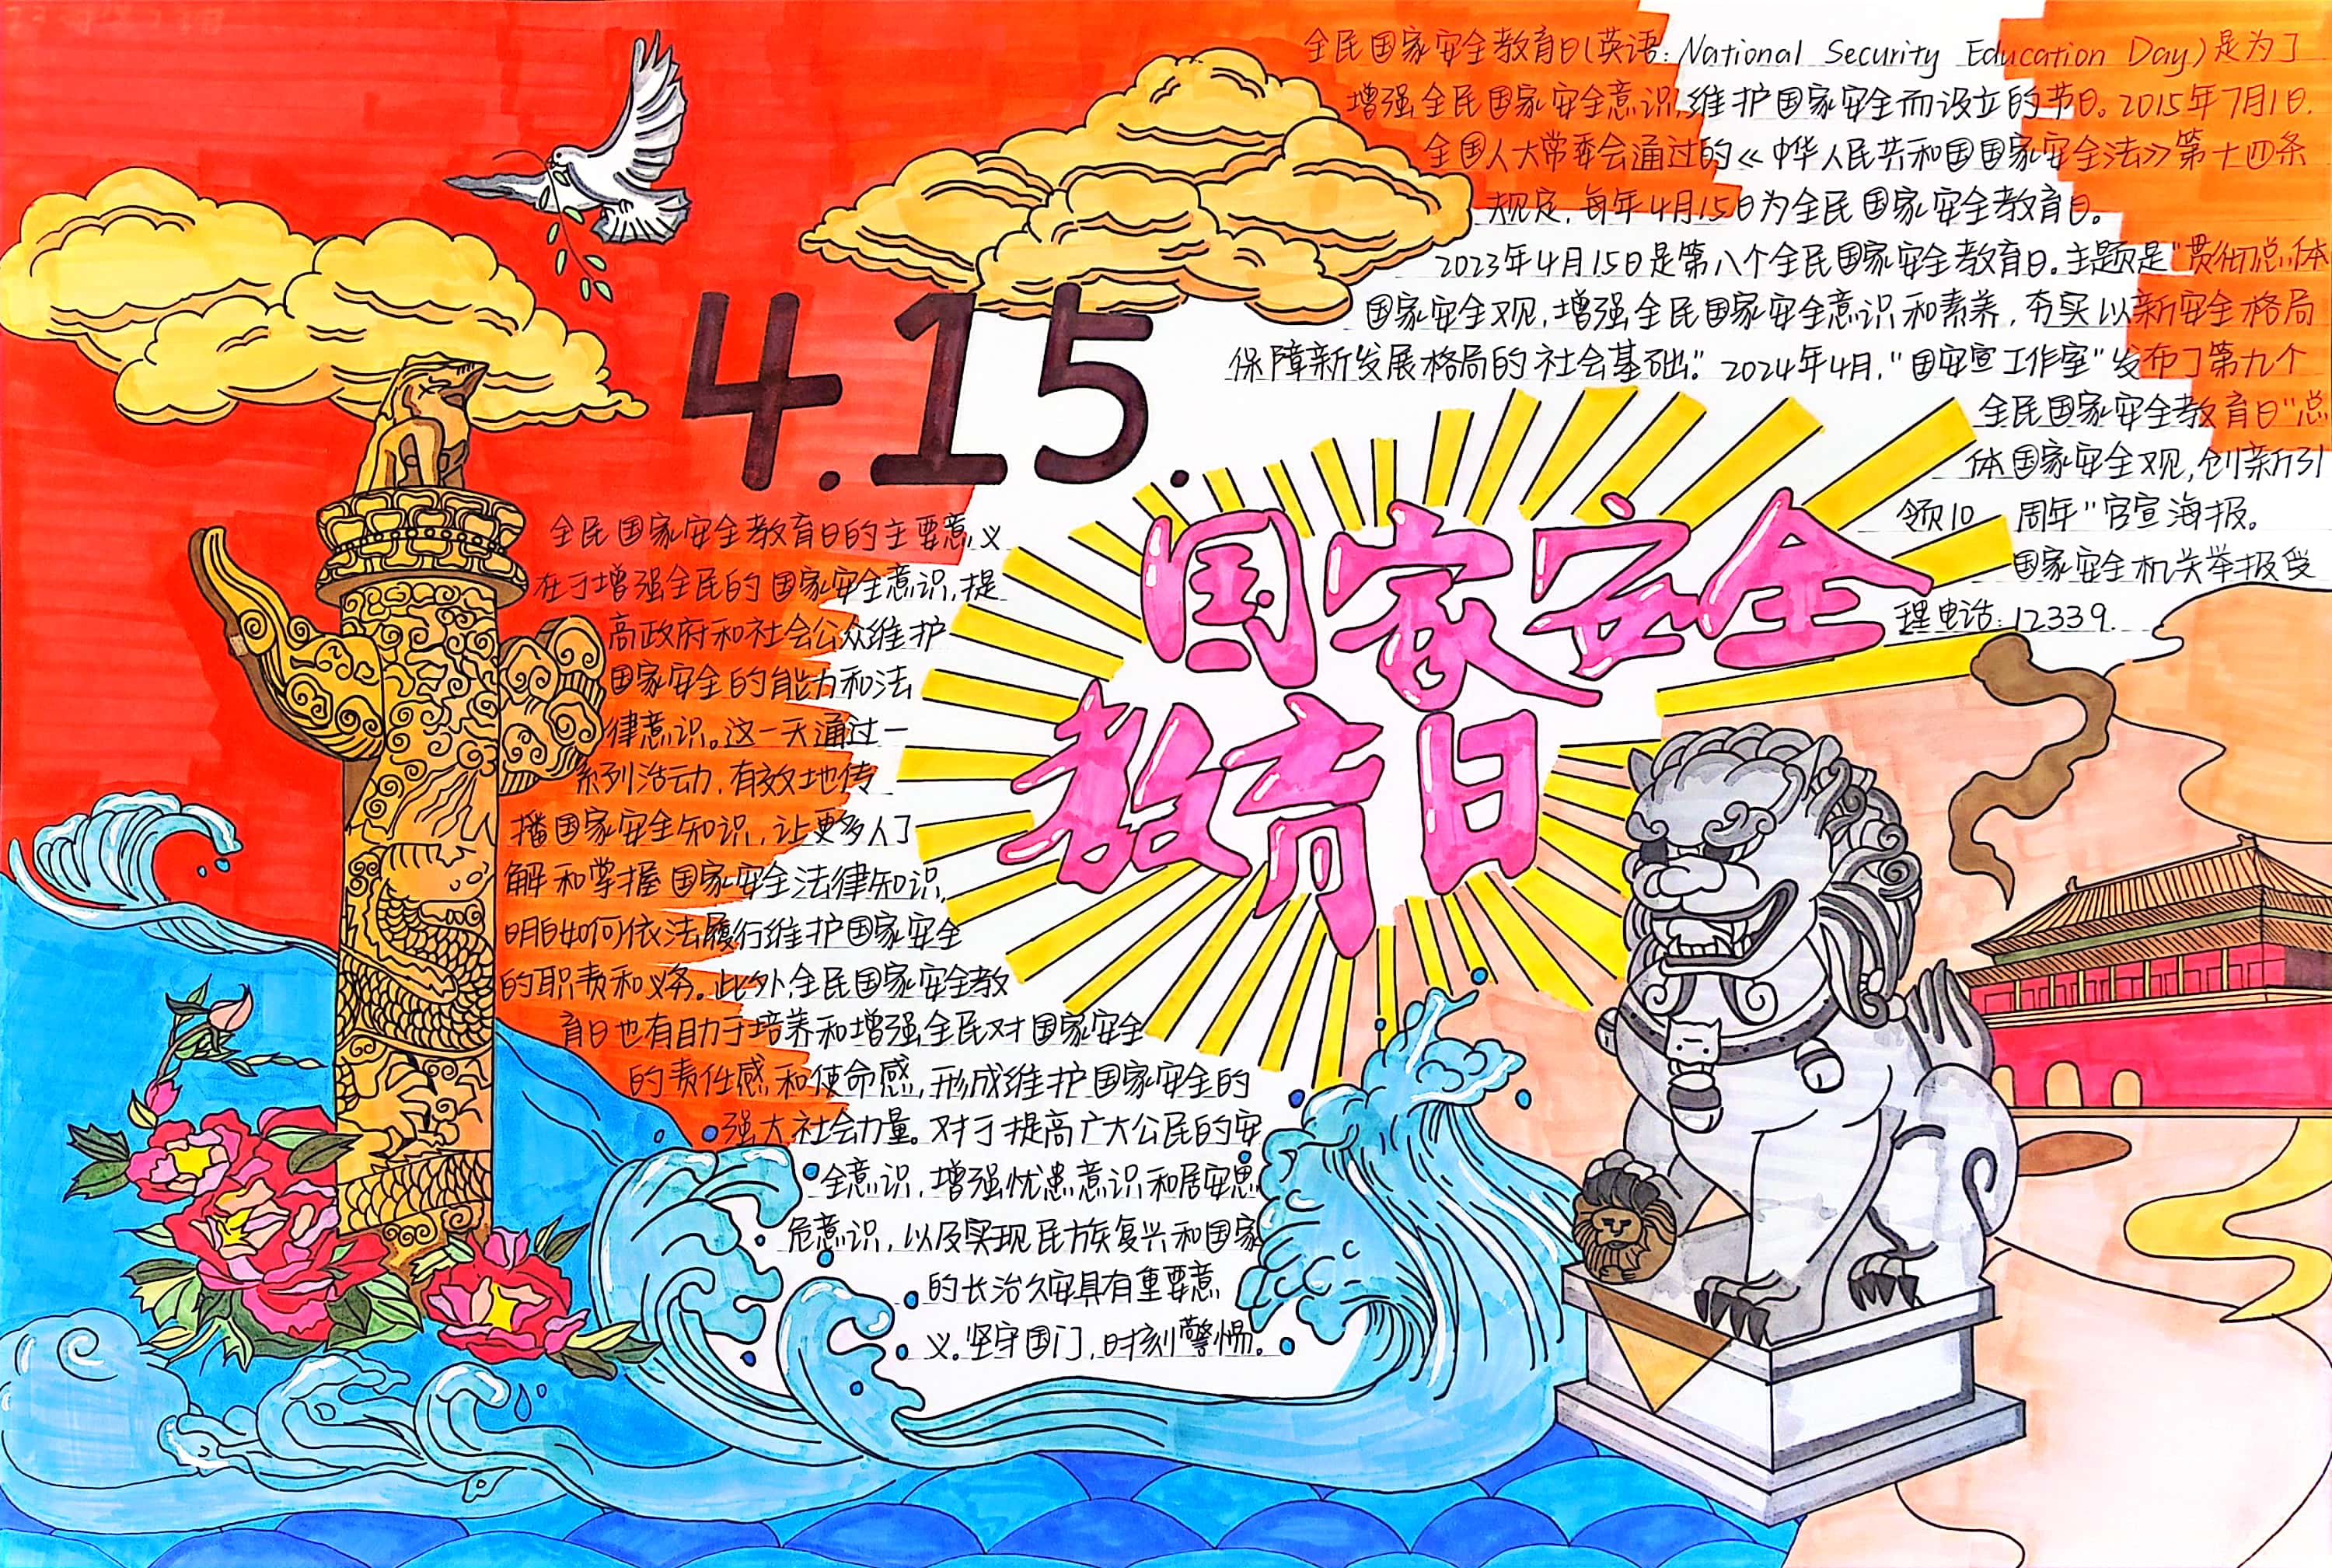 全民国家安全教育日(英语:National Security Education Day)是为了
增强全民国家安全意识,维护国家安全而设立的节日。2015年7月1日.
全国人大常委会通过的《中华人民共和国国家安全法》第十四条
规定,每年4月15日为全民国家安全教育日。
2023年4月15日是第八个全民国家安全教育日。主题是"贯彻总体
国家安全观,增强全民国家安全意识和素养,夯实以新安全格局
保障新发展格局的社会基础."2024年4月,"国安宣工作室"发布了第九个
全民国家安全教育日"总
体国家安全观,创新引
领10 周年"官宣海报。
国家安全机关举报受
理电话:12339.
4.15.
国家安全
教育日
全民国家安全教育日的主要意义
在于增强全民的国家安全意识,提
高政府和社会公众维护
国家安全的能力和法
律意识。这一天通过一
系列活动,有效地传
播国家安全知识,让更多人了
解和掌握国家安全法律知识,
明白如何依法履行维护国家安全
的职责和义务。此外,全民国家安全教
育日也有助于培养和增强全民对国家安全
的责任感和使命感,形成维护国家安全的
强大社会力量。对于提高广大公民的安
全意识,增强忧患意识和居安思
危意识,以及实现民族复兴和国家
的长治久安具有重要意
义。坚守国门,时刻警惕。